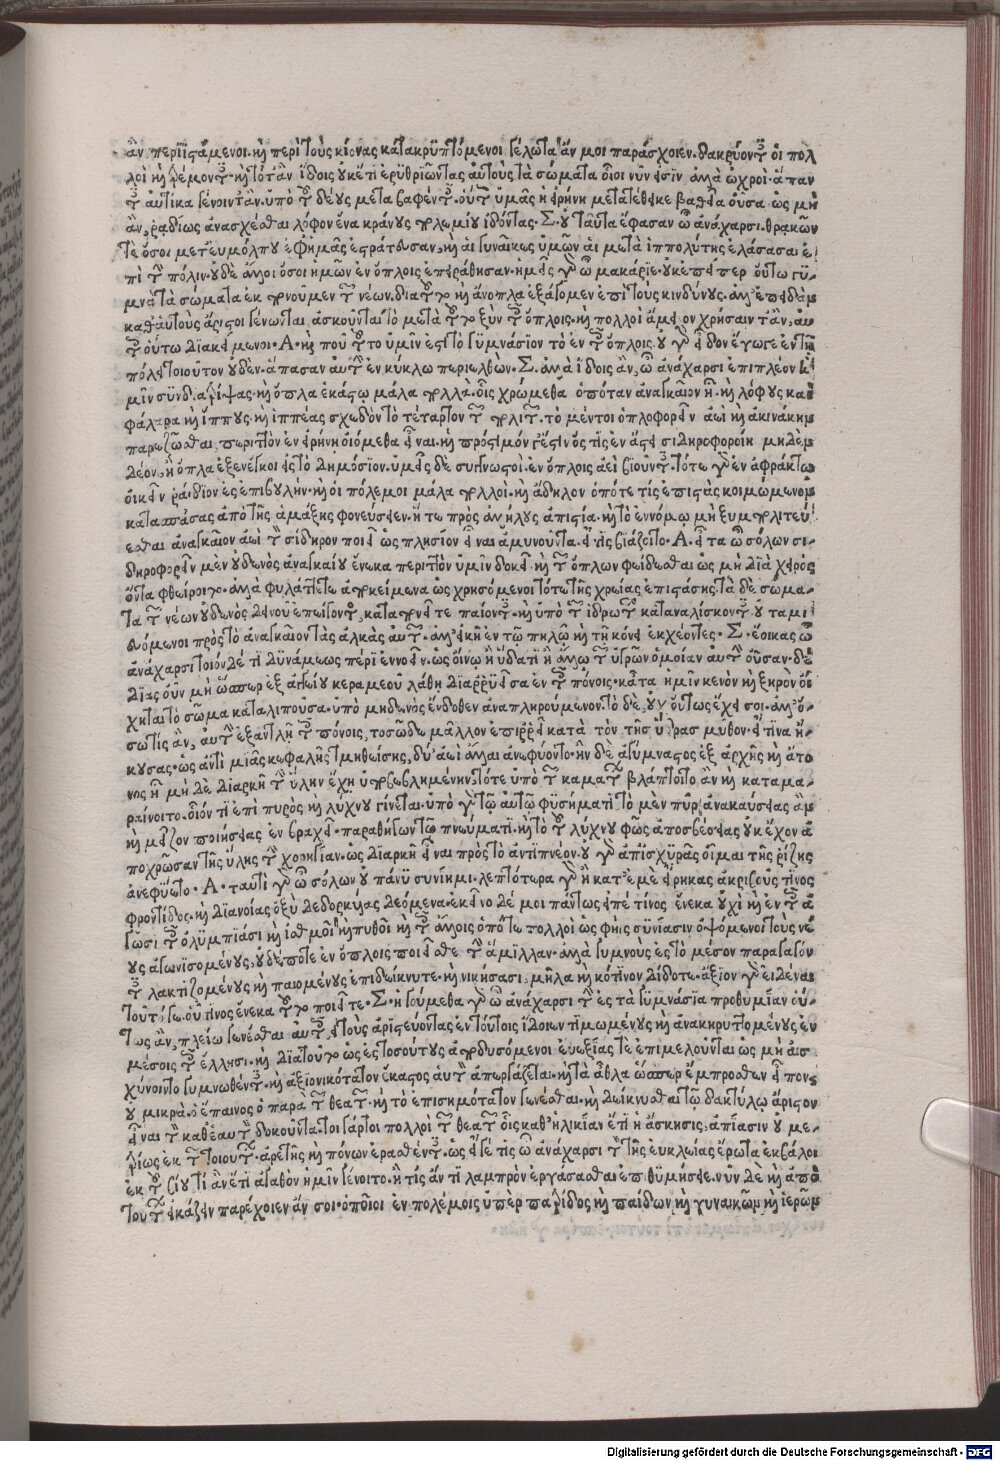 ἂν περιϊστάμενοι. καὶ περὶ τοὺς κίονας κατακρυπτόμενοι γέλωτα ἄν μοι παράσχοιεν. δακρύοντες οἱ πολ
λοὶ καὶ τρέμοντες· καὶ τότ᾽ ἂν ἴδοις οὐκέτι ἐρυθριῶντας αὐτοὺς τὰ σώματα οἷοι νῦν εἰσὶν ἀλλὰ ὠχροὶ· ἅπαν
τες αὐτίκα γένοιντ᾽ ἂν. ὑπὸ τοῦ δέους μεταβαφέντες. οὕτως ὑμᾶς ἡ εἰρήνη μετατέθεικε βαθεῖα οὖσα ὡς μὴ
ἂν, ῥαδίως ἀνασχέσθαι λόφον ἕνα κράνους πολεμίου ἰδόντας· Σ· οὐ ταῦτα ἔφασαν ὦ ἀνάχαρσι. θρακῶν
τε ὅσοι μετ᾽ εὐμόλπου ἐφ᾽ ἡμᾶς ἐστράτευσαν, καὶ αἱ γυναῖκες ὑμῶν αἱ μετὰ ἱππολύτης ἐλάσασαι ἐ
πὶ τὴν πόλιν· οὐδὲ ἄλλοι ὅσοι ἡμῶν ἐν ὅπλοις ἐπειράθησαν· ἡμεῖς γὰρ ὦ μακάριε· οὐκ ἐπείπερ οὕτω γυ-
μνὰ τὰ σώματα ἐκπονοῦμεν τῶν νέων. διὰ τοῦτο καὶ ἄνοπλα ἐξάγομεν ἐπὶ τοὺς κινδύνους. ἀλλ᾽ ἐπειδὰν
καθ᾽ αὑτοὺς ἄριστοι γένωνται, ἀσκοῦνται τὸ μετὰ τοῦτο ξὺν τοῖς ὅπλοις. καὶ πολλοὶ ἄμεινον χρήσαιντ᾽ ἂν, αὐ
τοῖς οὕτω διακείμενοι· Α· καὶ ποῦ τοῦτο ὑμῖν ἐστὶ τὸ γυμνάσιον τὸ ἐν τοῖς ὅπλοις. οὐ γὰρ εἶδον ἔγωγε ἐν τῇ
πόλει τοιοῦτον οὐδὲν. ἅπασαν αὐτὴν ἐν κύκλω περιελθὼν· Σ. ἀλλὰ ἴδοις ἂν, ὦ ἀνάχαρσι ἐπιπλέον ἡ
μῖν συνδιατρίψας· καὶ ὅπλα ἑκάστω μάλα πολλὰ. οἷς χρώμεθα ὁπόταν ἀναγκαῖον ᾖ. καὶ λόφους καὶ
φάλαρα καὶ ἵππους. καὶ ἱππέας σχεδὸν τὸ τέταρτον τῶν πολιτῶν. τὸ μέντοι ὁπλοφορεῖν ἀεὶ καὶ ἀκινάκην
παρεζῶσθαι, περιττὸν ἐν εἰρήνη οἰόμεθα εἶναι. καὶ πρόστιμόν γ᾽ ἔστιν ὅστις ἐν ἄστει σιδηροφοροίη μηδὲν
δέον, ἢ ὅπλα ἐξενέγκοι εἰς τὸ δημόσιον. ὑμεῖς δὲ συγγνωστοὶ. ἐν ὅπλοις ἀεὶ βιοῦντες. τό τε γὰρ ἐν ἀφράκτω
οἰκεῖν ῥάδιον ἐς ἐπιβουλὴν· καὶ οἱ πόλεμοι μάλα πολλοὶ· καὶ ἄδηλον ὁπότε τίς ἐπιστὰς κοιμώμενον
κατασπάσας ἀπὸ τῆς ἁμάξης φονεύσειεν. ἥ τε πρὸς ἀλλήλους ἀπιστία. καὶ τὸ ἐν νόμω μὴ ξυμπολιτεύ
εσθαι ἀναγκαῖον ἀεὶ τὸν σίδηρον ποιεῖ ὡς πλησίον εἶναι ἀμυνοῦντα. εἴ τις βιάζοιτο· Α. εἶτα ὦ σόλων σι-
δηροφορεῖν μὲν οὐδενὸς ἀναγκαίου ἕνεκα περιττὸν ὑμῖν δοκεῖ. καὶ τῶν ὅπλων φείδεσθαι ὡς μὴ διὰ χειρὸς
ὄντα φθείροιτο. ἀλλὰ φυλάττετε ἀποκείμενα ὡς χρησόμενοι τότε τῆς χρείας ἐπιστάσης· τὰ δὲ σώμα-
τα τῶν νέων οὐδενὸς δεινοῦ ἐπείγοντος, καταπονεῖτε παίοντες· καὶ ὑπὸ τῶν ἱδρώτων καταναλίσκοντες οὐ ταμι
ευόμενοι πρὸς τὸ ἀναγκαῖον τὰς ἀλκὰς αὐτῶν· ἀλλ᾽ εἰκῆ ἐν τῶ πηλῶ καὶ τῆ κόνει ἐκχέοντες· Σ· ἔοικας ὦ
ἀνάχαρσι τοιόνδέ τι δυνάμεως πέρι ἐννοεῖν. ὡς οἴνω ἢ ὕδατι ἢ ἄλλω τῶν ὑγρῶν ὁμοίαν αὐτὴν οὖσαν· δέ
διας οὖν μὴ ὥσπερ ἐξ ἀγγείου κεραμεοῦ λάθη διαρρυεῖσα ἐν τοῖς πόνοις· κᾆτα ἡμῖν κενὸν καὶ ξηρὸν οἴ
χηται τὸ σῶμα καταλιποῦσα. ὑπὸ μηδενὸς ἔνδοθεν ἀναπληρούμενον. τὸ δὲ, οὐχ οὕτως ἔχει σοι. ἀλλ᾽ ὅ-
σω τίς ἂν, αὐτὴν ἐξαντλῆ τοῖς πόνοις, τοσῶδε μᾶλλον ἐπιρρεῖ κατὰ τὸν τῆς ὕδρας μῦθον· εἴ τινα ἤ-
κουσας· ὡς ἀντὶ μιᾶς κεφαλῆς τμηθείσης, δύ᾽ ἀεὶ ἄλλαι ἀνεφύοντο· ἢν δὲ ἀγύμναστος ἐξ ἀρχῆς καὶ ἄτο
νος ᾖ μὴ δὲ διαρκῆ τὴν ὕλην ἔχη ὑποβεβλημένην. τότε ὑπὸ τῶν καμάτων βλάπτοιτο ἂν καὶ καταμα-
ραίνοιτο. οἷόν τι ἐπὶ πυρὸς καὶ λύχνου γίνεται. ὑπὸ γὰρ τῶ αὐτῶ φυσήματι, τὸ μὲν πῦρ, ἀνακαύσειας ἂν
καὶ μεῖζον ποιήσειας ἐν βραχεῖ· παραθήγων τῶ πνεύματι. καὶ τὸ τοῦ λύχνου φῶς ἀποσβέσειας οὐκ ἔχον ἀ
ποχρῶσαν τῆς ὕλης τὴν χορηγίαν. ὡς διαρκῆ εἶναι πρὸς τὸ ἀντιπνέον. οὐ γὰρ ἀπ᾽ ἰσχυρᾶς οἶμαι τῆς ῥίζης
ἀνεφύετο· Α· ταυτὶ γὰρ ὦ σόλων οὐ πάνυ συνίημι. λεπτότερα γὰρ ἢ κατ᾽ ἐμὲ εἴρηκας ἀκριβοῦς τινος
φροντίδος. καὶ διανοίας ὀξὺ δεδορκυίας δεόμενα. ἐκεῖνο δέ μοι πάντως εἰπὲ τίνος ἕνεκα οὐχὶ καὶ ἐν τοῖς ἀ
γῶσι τοῖς ὀλυμπιάσι καὶ ἰσθμοῖ καὶ πυθοῖ καὶ τοῖς ἄλλοις ὁπότε πολλοὶ ὡς φὴς συνίασιν ὀψόμενοι τοὺς νέ
ους ἀγωνιζομένους, οὐδέποτε ἐν ὅπλοις ποιεῖσθε τὴν ἅμιλλαν· ἀλλὰ γυμνοὺς ἐς τὸ μέσον παραγαγόν
τες λακτιζομένους καὶ παιομένους ἐπιδείκνυτε. καὶ νικήσασι, μῆλα καὶ κότινον δίδοτε· ἄξιον γὰρ εἰδέναι
τοῦτό γε. οὗτινος ἕνεκα τοῦτο ποιεῖτε· Σ· ἡγούμεθα γὰρ ὦ ἀνάχαρσι τὴν ἐς τὰ γυμνάσια προθυμίαν οὕ-
τως ἂν, πλείω γενέσθαι αὐτοῖς, εἰ τοὺς ἀριστεύοντας ἐν τούτοις ἴδοιεν τιμωμένους καὶ ἀνακηρυττομένους ἐν
μέσοις τοῖς ἕλλησι. καὶ διὰ τοῦτο ὡς ἐς τοσούτους ἀποδυσόμενοι εὐεξίας τὲ ἐπιμελοῦνται ὡς μὴ αἰσ
χύνοιντο γυμνωθέντες· καὶ ἀξιονικότατον ἕκαστος αὑτὸν ἀπεργάζεται. καὶ τὰ ἆθλα ὥσπερ ἔμπροσθεν εἶπον,
οὐ μικρὰ. ὁ ἔπαινος ὁ παρὰ τῶν θεατῶν. καὶ τὸ ἐπισημότατον γενέσθαι. καὶ δείκνυσθαι τῶ δακτύλω ἄριστον
εἶναι τῶν καθ᾽ ἑαυτὸν δοκοῦντα. τοιγάρτοι πολλοὶ τῶν θεατῶν οἷς καθ᾽ ἡλικίαν ἔτι ἡ ἄσκησις, ἀπίασιν οὐ με-
τρίως ἐκ τῶν τοιούτων. ἀρετῆς καὶ πόνων ἐρασθέντες. ὡς εἴγέ τις ὦ ἀνάχαρσι τὸν τῆς εὐκλείας ἔρωτα ἐκβάλοι
ἐκ τοῦ βίου τί ἂν ἔτι ἀγαθὸν ἡμῖν γένοιτο. ἢ τίς ἄν τι λαμπρὸν ἐργάσασθαι ἐπιθυμήσειε. νῦν δὲ καὶ ἀπὸ
τούτων εἰκάζειν παρέχοιεν ἄν σοι. ὁποῖοι ἐν πολέμοις ὑπὲρ πατρίδος καὶ παίδων καὶ γυναικῶν καὶ ἱερῶν
Digitalisierung gefördert durch die Deutsche Forschungsgemeinschaft - DFG